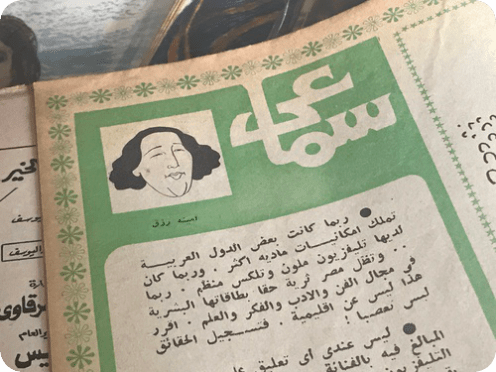 سماعي
امينه رزق
● ربما كانت بعض الدول العربية
تملك امكانيات ماديه اكثر . وربما كان
لديها تليفزيون ملون وتلكس منظم . ربما
. . وتظل مصر ثرية حقا بطاقاتها البشرية
في مجال الفن والادب والفكر والعلم . اقرر
هذا ليس عن اقليمية . فتسجيل الحقائق
ليس تعصبا !
● ليس عندى اى تعليق على
المبالغ فيه بالفنانة
التليفزيون
الخير
يوسف
اليوسف
رقاوى
والعام
يس